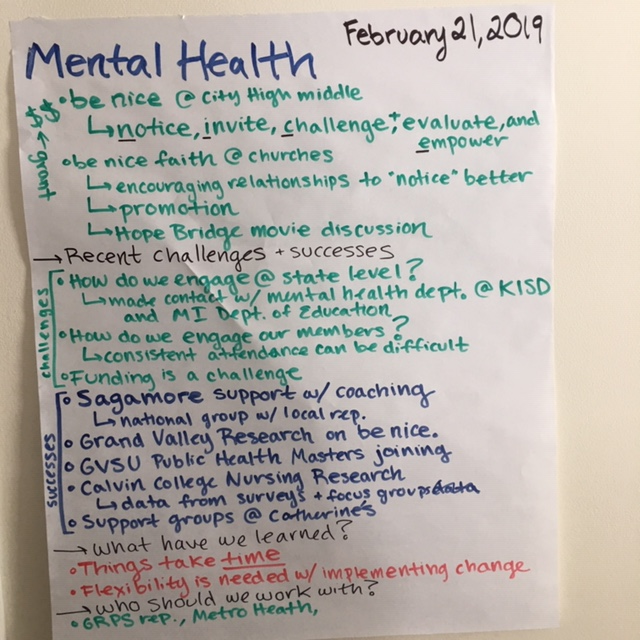 February 21, 2019
Mental Health
$$ → grant
• be nice @ City High middle
↳ notice, invite, challenge, + evaluate, and
empower
• be nice faith @ churches
↳ encouraging relationships to "notice" better
↳ promotion
↳ Hope Bridge movie discussion
→ Recent challenges + successes
challenges
• How do we engage @ state level?
↳ made contact w/ mental health dept. @ KISD
and MI Dept. of Education
• How do we engage our members?
↳ consistent attendance can be difficult
• Funding is a challenge
successes
• Sagamore support w/ coaching
↳ national group w/ local rep.
• Grand Valley Research on be nice.
• GVSU Public Health Masters joining
• Calvin College Nursing Research
↳ data from surveys + focus groups data
• Support groups @ Catherine's
→ what have we learned?
• Things take time
• Flexibility is needed w/ implementing change
→ who should we work with?
• GRPS rep., Metro Heath,